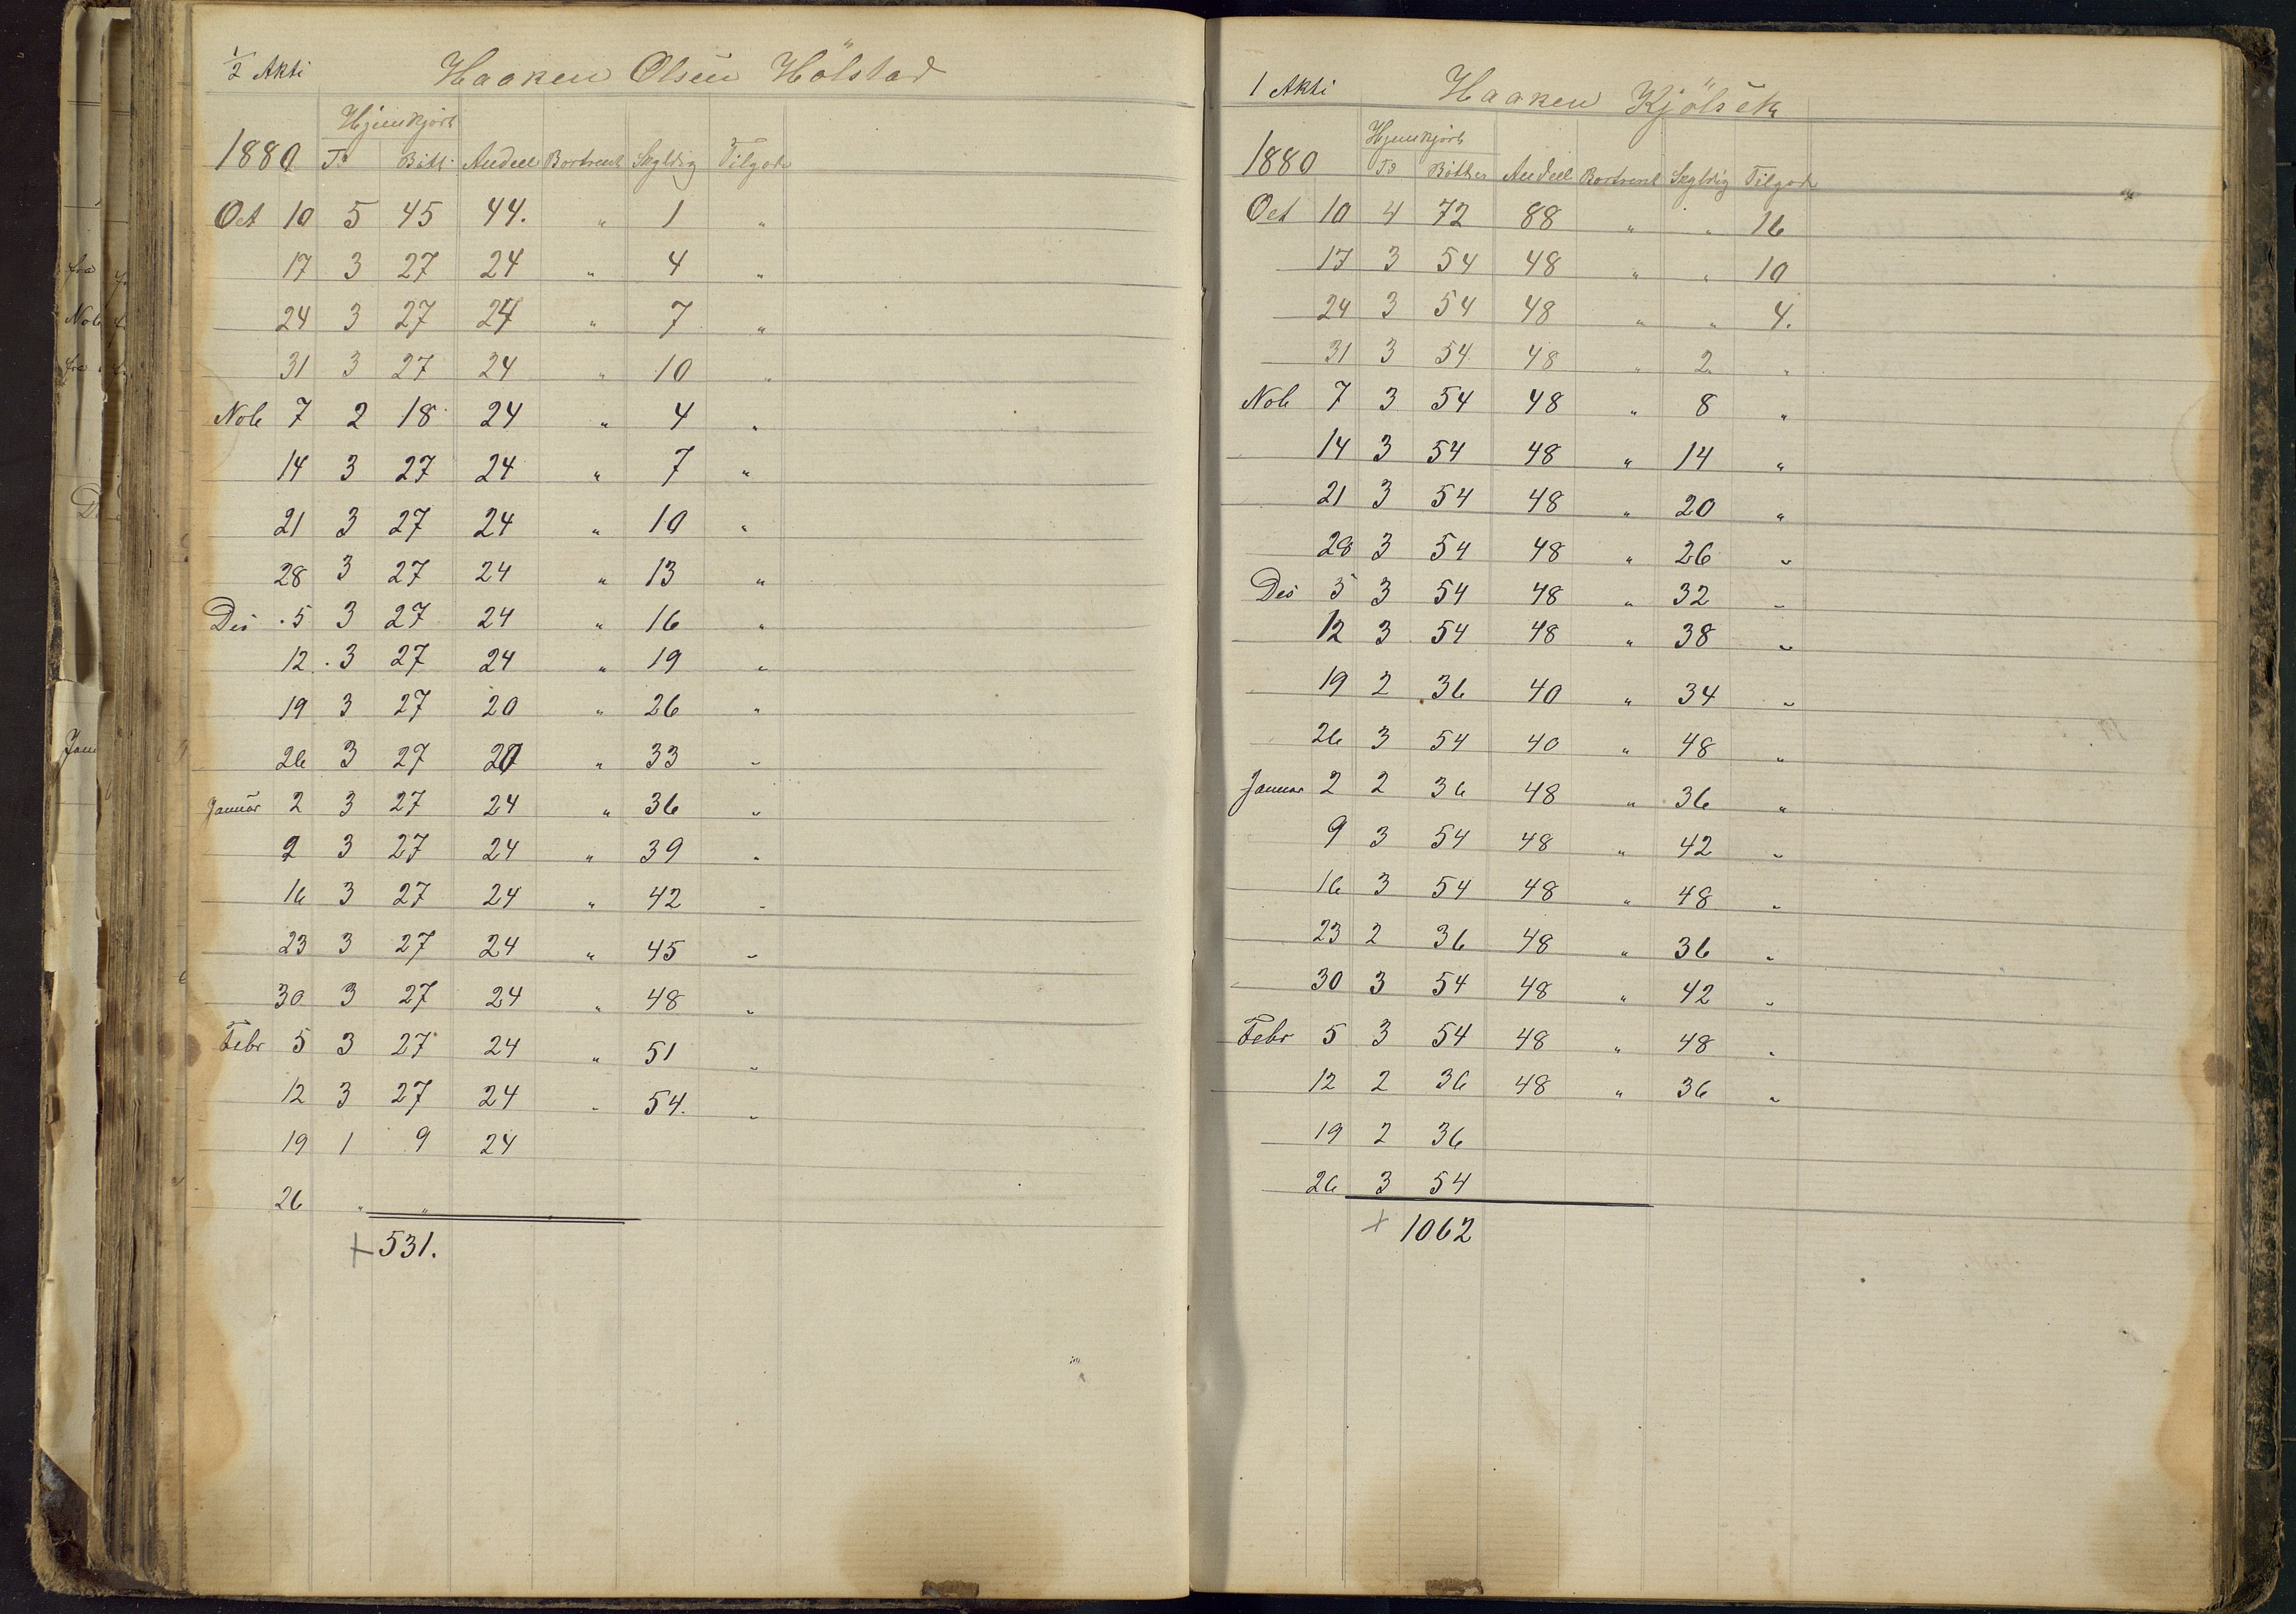 1/2 Akti Haaken Olsen Hölstad
Hjemkjört
1880 Tö Bött. Andeel Bortsent Skyldig Tilgode
Oct 10 5 45 44. " 1 "
17 3 27 24 " 4 "
24 3 27 24 " 7 "
31 3 27 24 " 10 "
Nob 7 2 18 24 " 4 "
14 3 27 24 " 7 "
21 3 27 24 " 10 "
28 3 27 24 " 13 "
Des 5 3 27 24 " 16 "
12 3 27 24 " 19 "
19 3 27 20 " 26 "
26 3 27 20 " 33 "
Januar 2 3 27 24 " 36 "
9 3 27 24 " 39 "
16 3 27 24 " 42 "
23 3 27 24 " 45 "
30 3 27 24 " 48 "
Febr 5 3 27 24 " 51 "
12 3 27 24 " 54. "
19 1 9 24
26 " "
+ 531.
1 Akti Haaken Kjölsek
Hjemkjört
1880 Tö Bötter Andeel Bortsent Skyldig Tilgode
Oct 10 4 72 88 " " 16
17 3 54 48 " " 10
24 3 54 48 " " 4.
31 3 54 48 " 2 "
Nob 7 3 54 48 " 8 "
14 3 54 48 " 14 "
21 3 54 48 " 20 "
28 3 54 48 " 26 "
Des 5 3 54 48 " 32 "
12 3 54 48 " 38 "
19 2 36 40 " 34 "
26 3 54 40 " 48 "
Januar 2 2 36 48 " 36 "
9 3 54 48 " 42 "
16 3 54 48 " 48 "
23 2 36 48 " 36 "
30 3 54 48 " 42 "
Febr 5 3 54 48 " 48 "
12 2 36 48 " 36 "
19 2 36
26 3 54
+ 1062